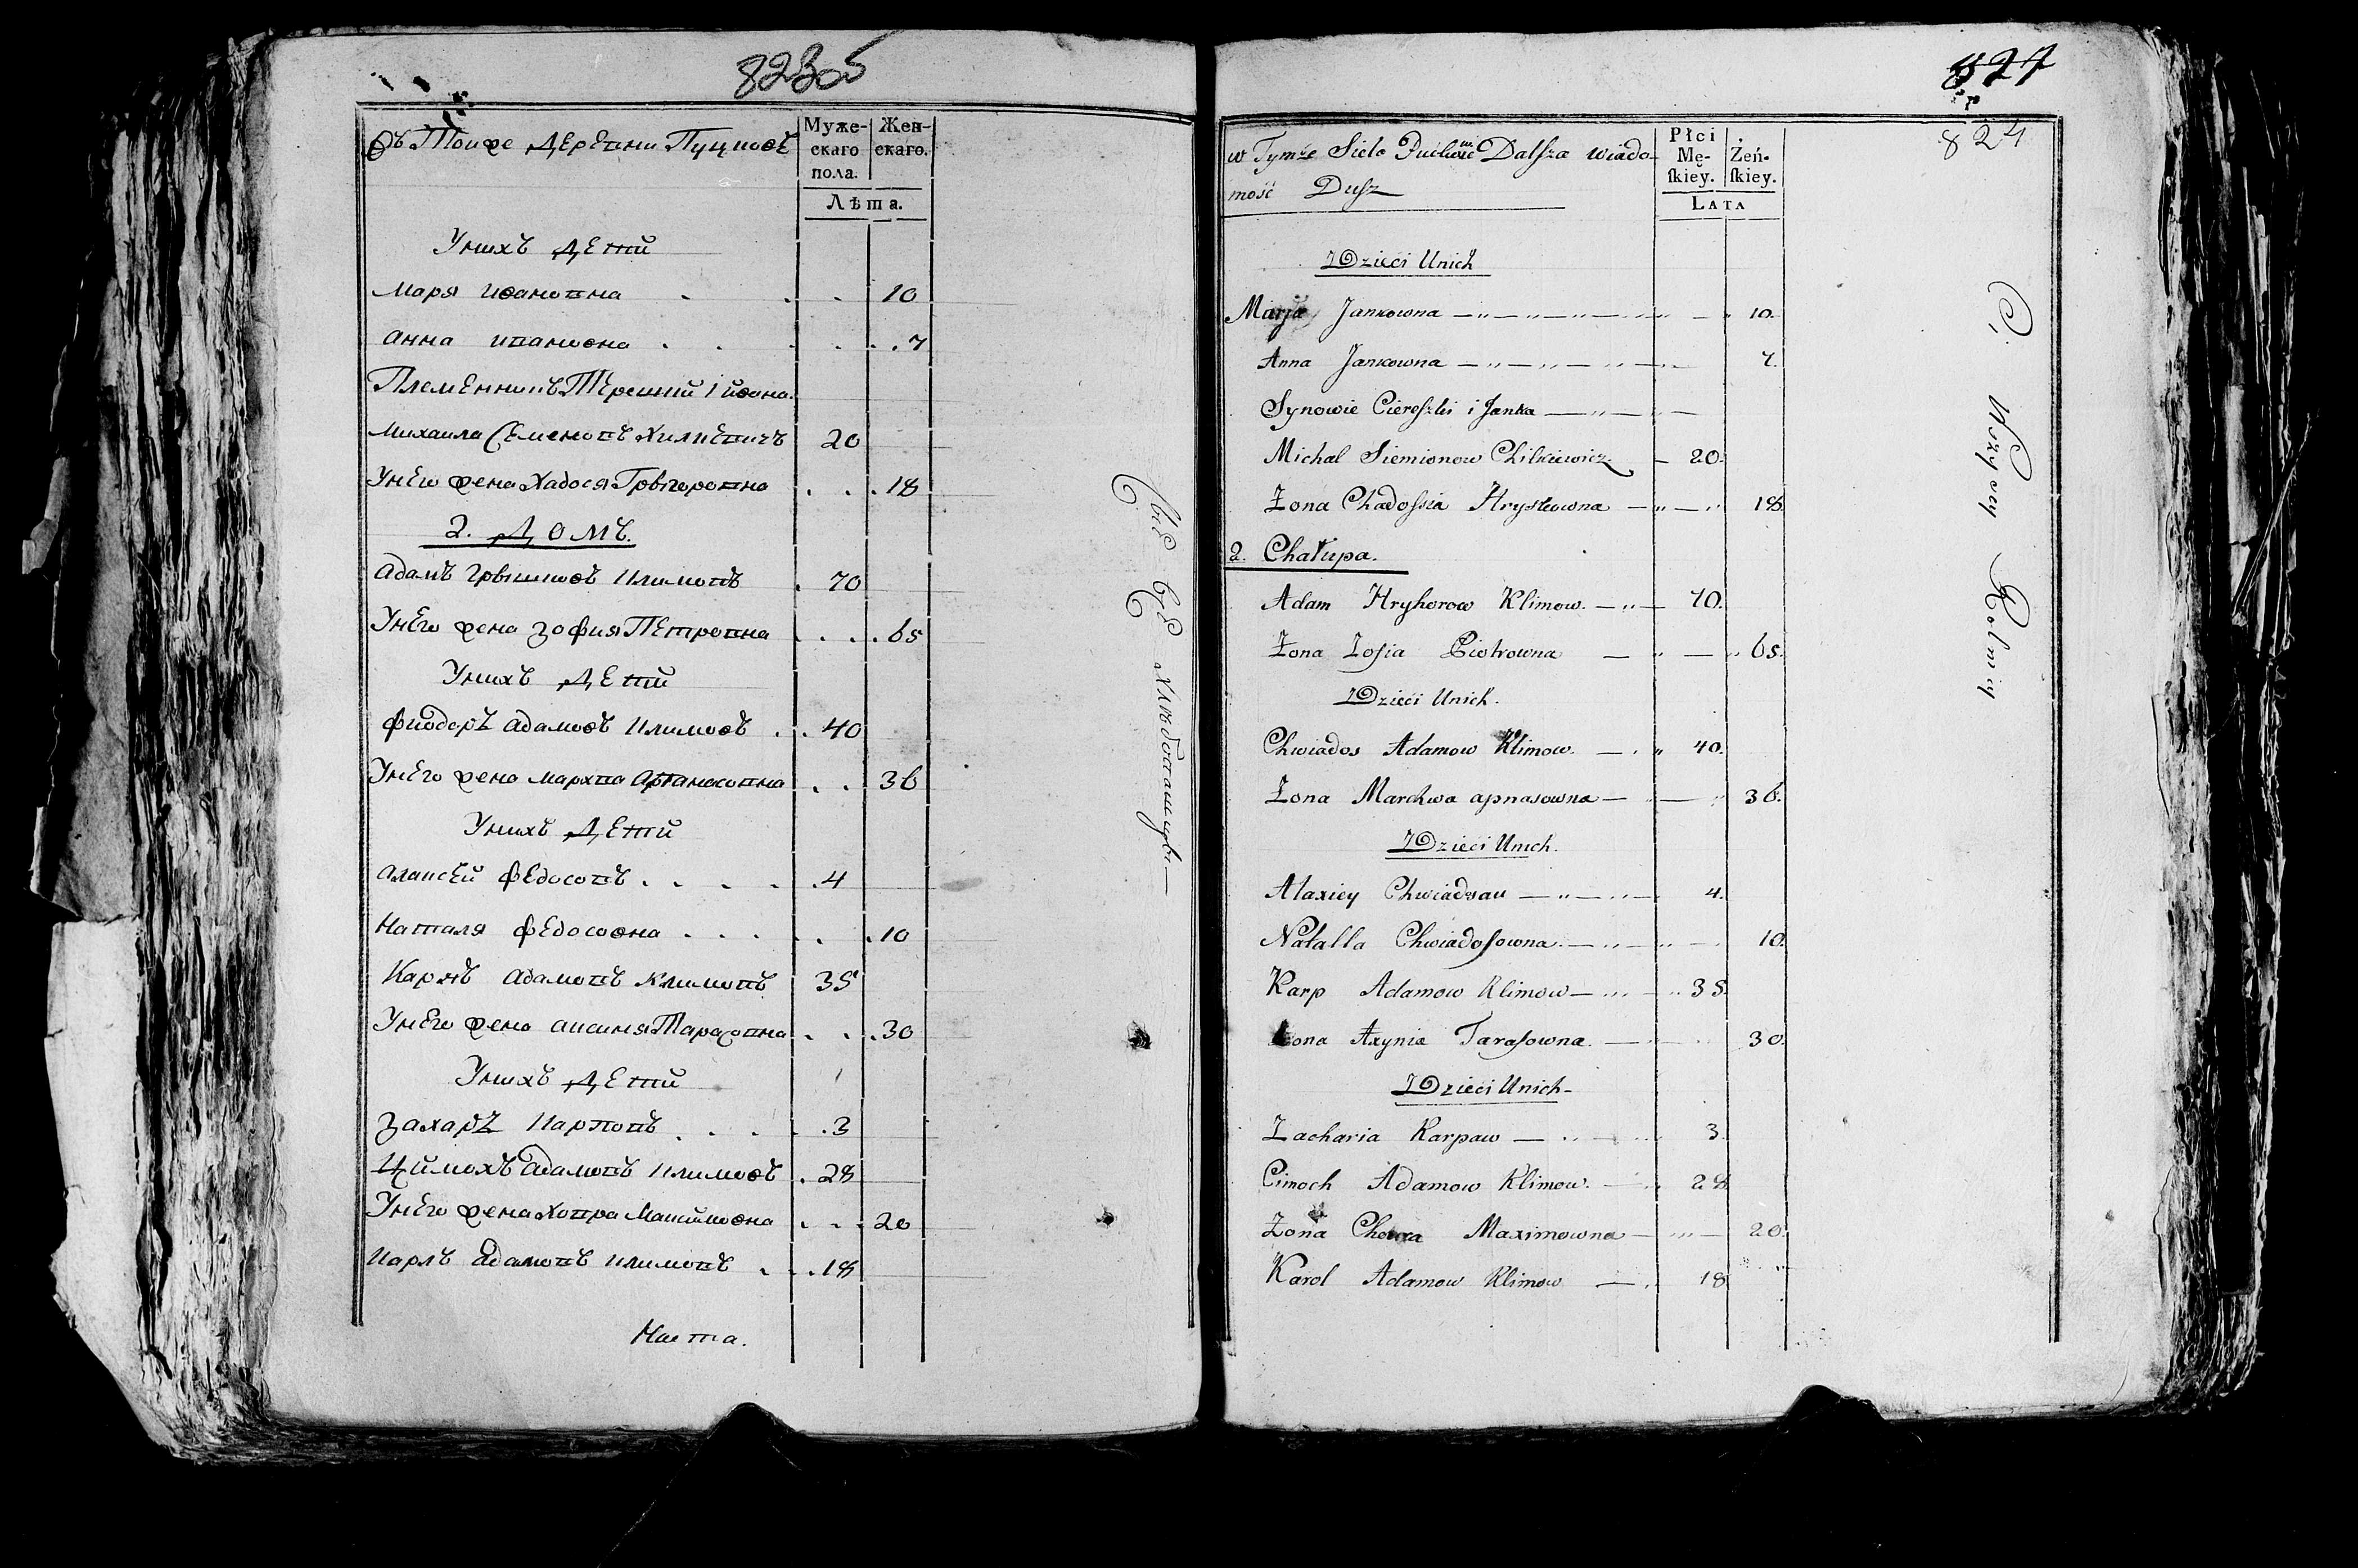 823об
Въ Тоиже Деревни Пуцковѣ
Муже-
скаго
пола.
Жен-
скаго.
Лѣта.
Унихъ Детий
Маря ивановна 10
анна ивановна 7
Племенникъ Терешкй i йвана
Михаила Семеновъ Хилкевичъ 20
Унего жена Хадося Грыгоровна 18
2. Домъ.
адамъ Грышковъ Климовъ 70
Унего жена Зофия Петровна 65
Унихъ Детий
фиодоръ адамовъ Климовъ 40
Унего жена Мархва апанасовна 36
Унихъ Детий
алаксей федосовъ 4
Наталя федосовна 10
Карпъ адамовъ климовъ 35
Унего жена аксиня Тарасовна 30
Унихъ Детий
Захаръ Карповъ 3
Цимохъ адамовъ Климовъ 28
Унего жена Ховра Максимовна 20
Карлъ адамовъ климовъ 18
Сые Все хлѣбопашцы
827
824
w Tymże Siele Dalsza wiado-
mość Dusz
Płci
Mę-
skiey.
Żeń-
skiey.
Lata
Dzieci Unich
Marja Jankowna 10.
Anna Jankowna 7.
Synowie Cieroszki i Janka
Michal Siemionow Chilkiewicz 20.
Żona Chadossia Hryszkowna 18.
2. Chałupa.
Adam Hryhorow Klimow. 70.
Żona Zosia Piotrowna 65.
Dzieci Unich.
Chwiados Adamow Klimow. 40.
Żona Marchwa apnasowna 36.
Dzieci Unich.
Alaxiey Chwiadsau 4.
Natalla Chwiadosowna. 10.
Karp Adamow Klimow 35.
Żona Axynia Tarasowna. 30.
Dzieci Unich
Zacharia Karpaw 3.
Cimoch Adamow Klimow. 28
Żona Chowra Maximowna 20.
Karol Adamow Klimow 18
Ci Wszyscy Rolnicy